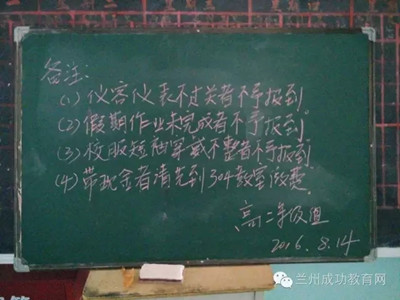 备注:
(1)仪容仪表不过关者不予报到
(2)假期作业未完成者不予报到
(3)校服短袖穿戴不整者不予报到
(4)带现金者请先到304教室缴费
高二年级组
2016.8.14
兰州成功教育网